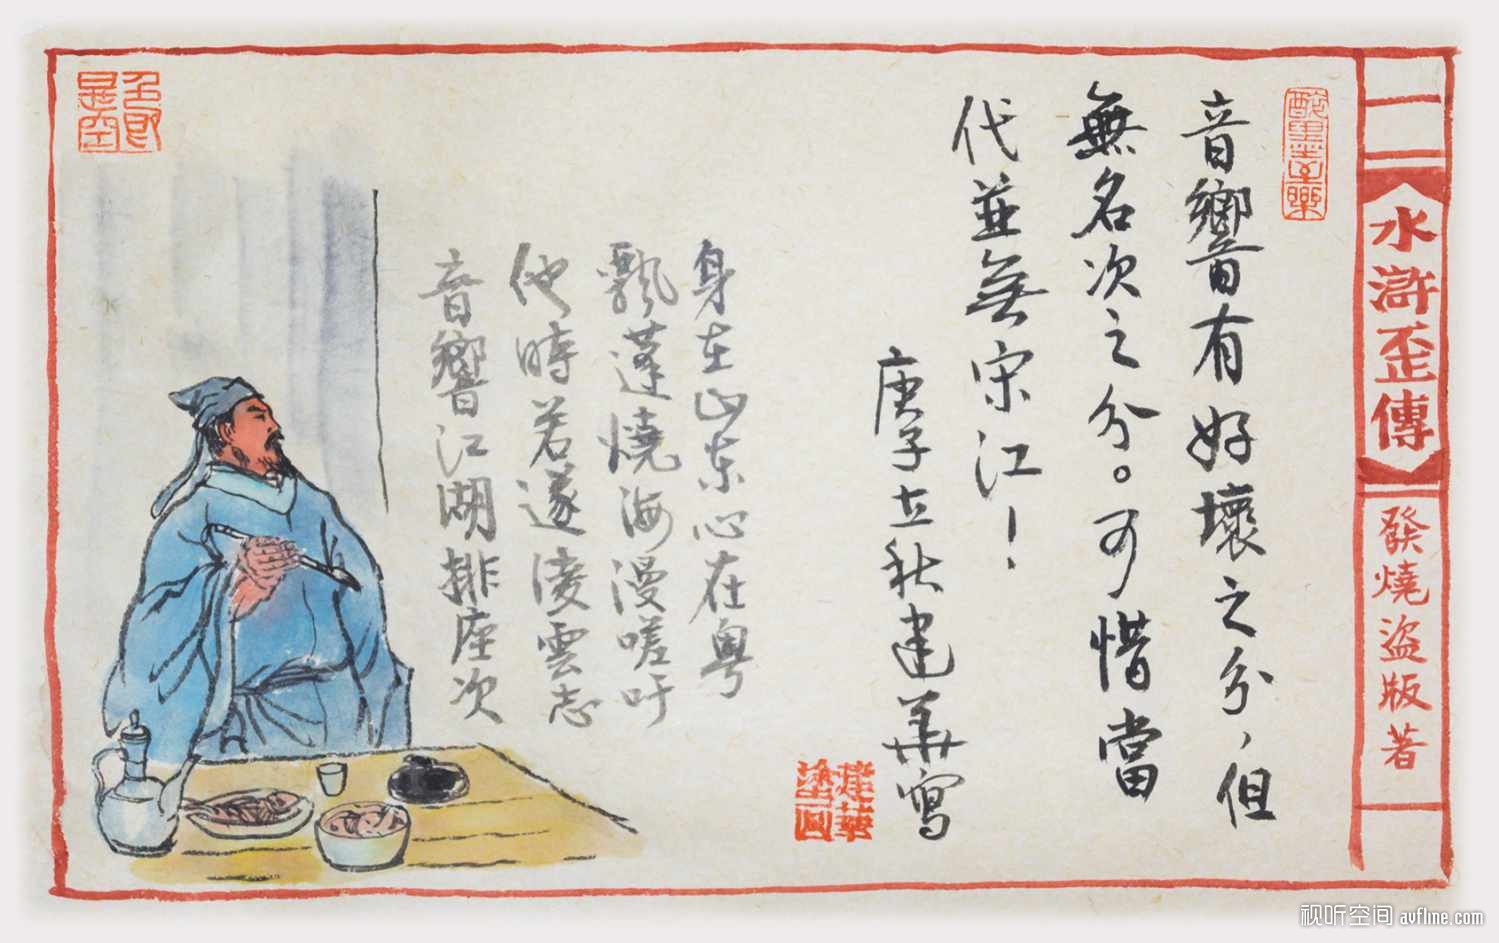 水滸歪傳
發燒盜版著
音響有好壞之分，但
無名次之分。可惜當
代並無宋江！
庚子立秋建華寫
身在山東心在粵
飄蓬燒海漫嗟吁
他時若遂凌雲志
音響江湖排座次
色即是空
视听空间 avfline.com